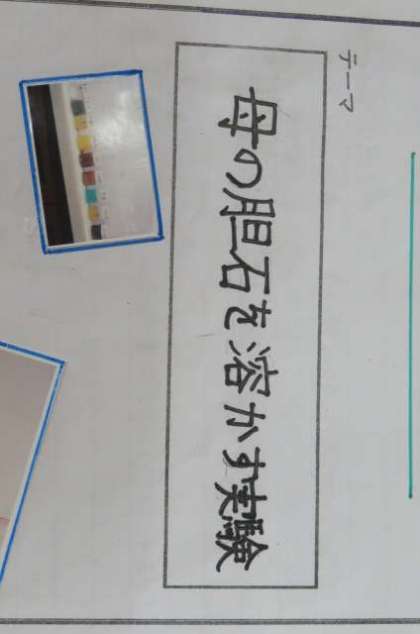 テーマ
母の胆石を溶かす実験